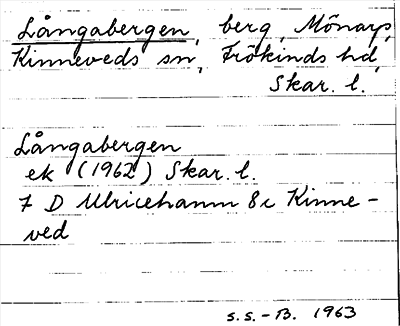 Långabergen, berg, Mönarp,
Kinneveds sn, Frökinds hd,
Skar. l.
Långabergen
ek (1962) Skar. l.
7 D Ulricehamn 8c Kinne-
ved
S.S.-B. 1963